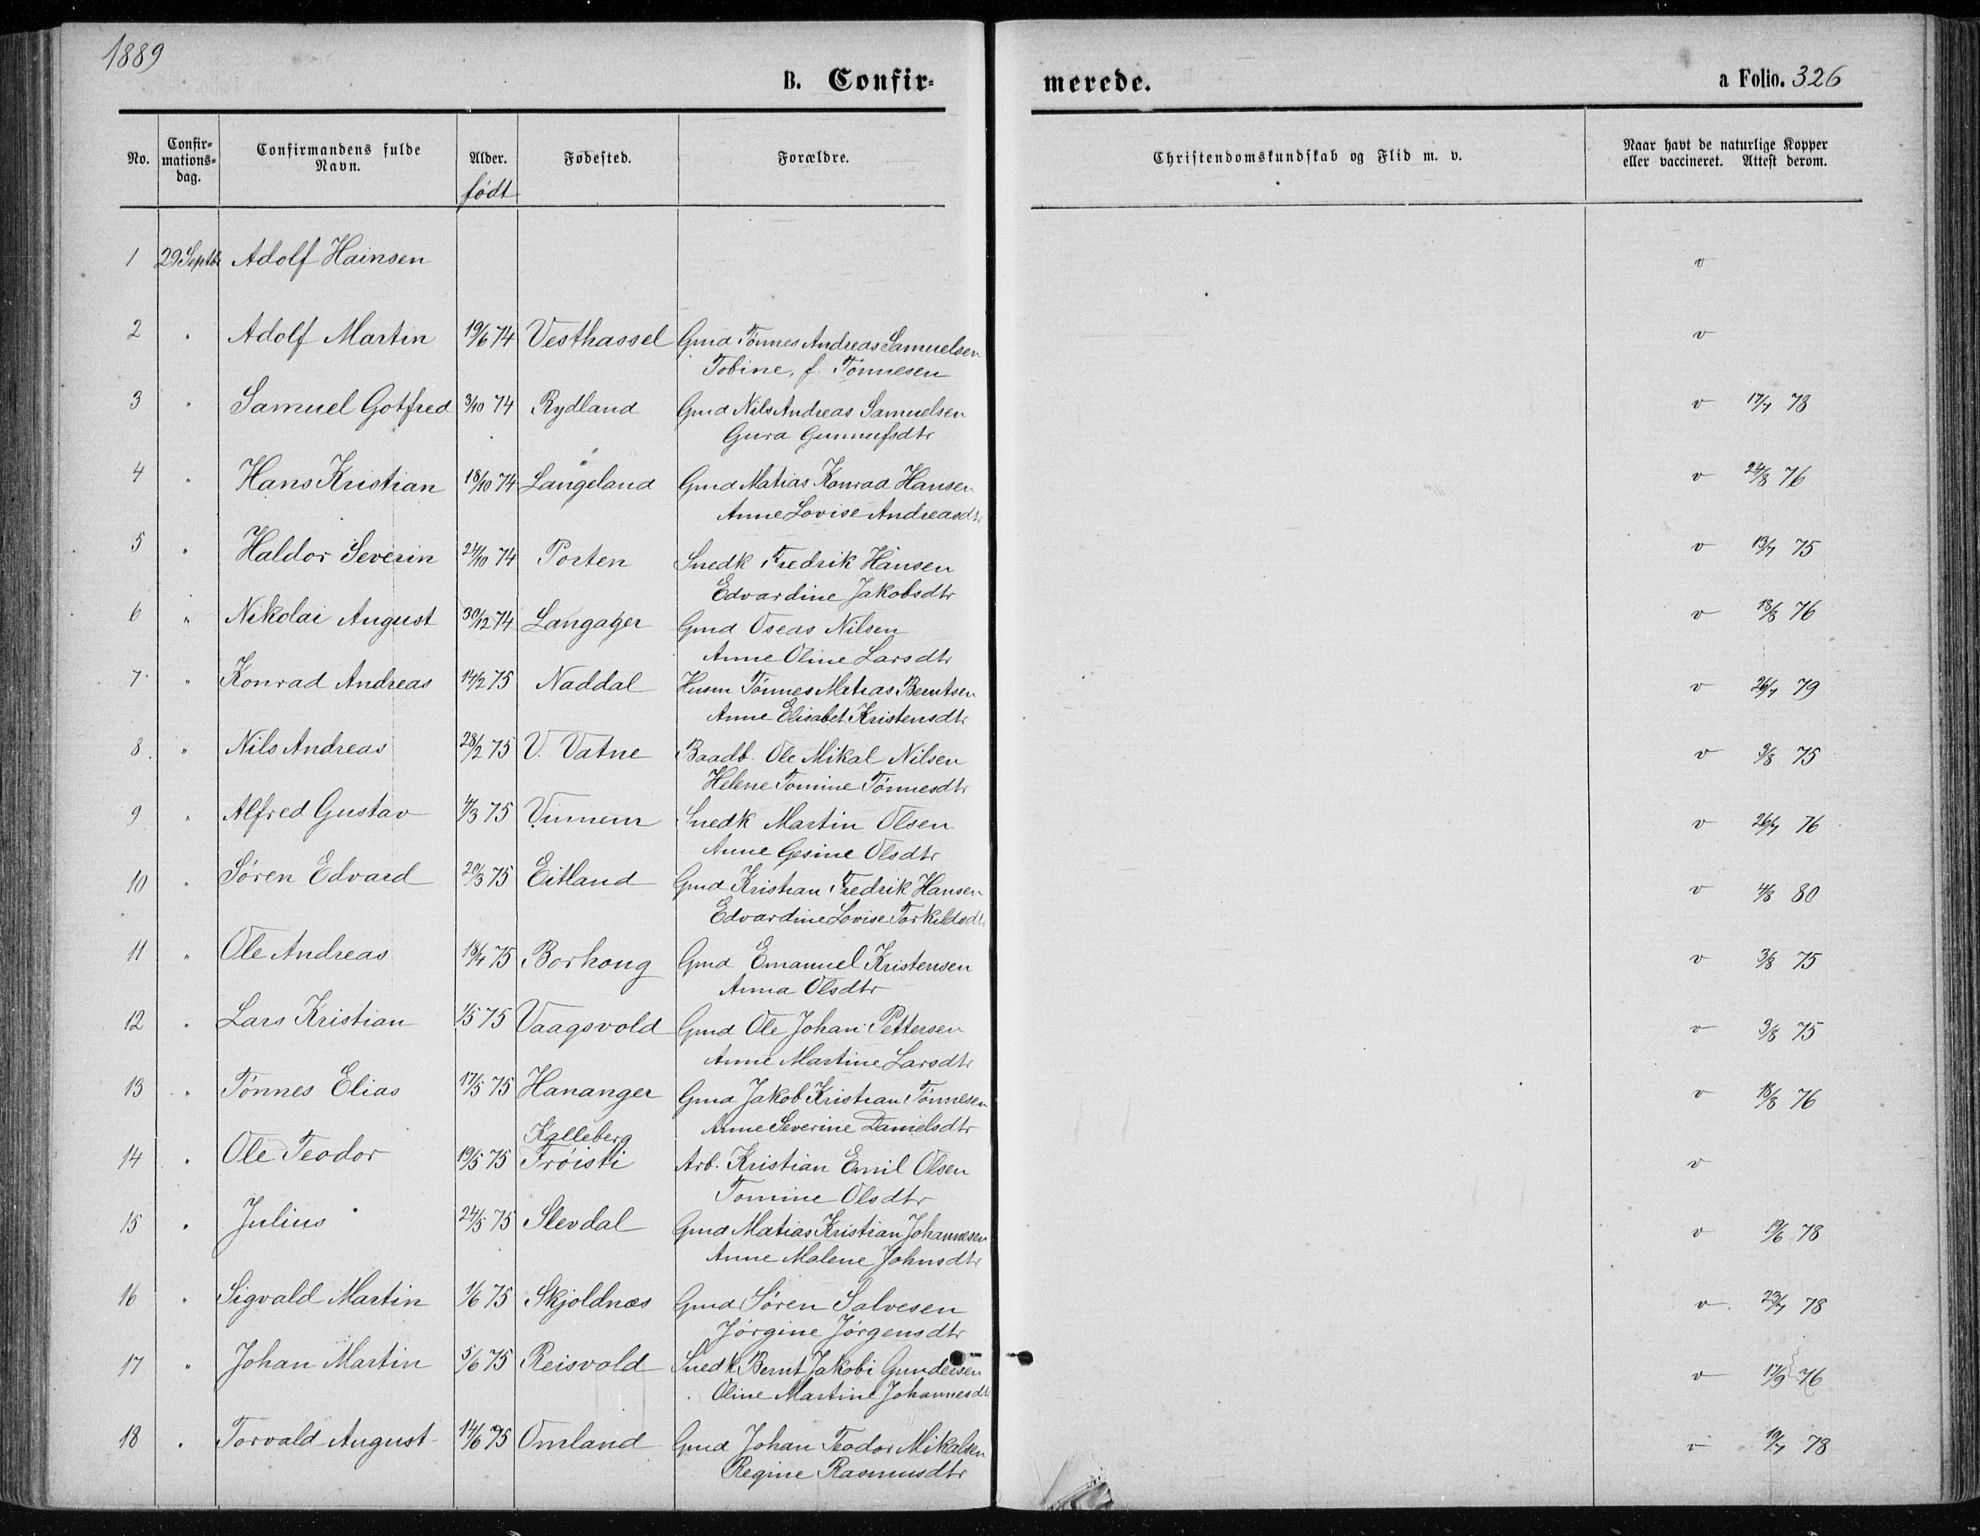 1889
B. Confir-
merede.
a Folio. 326
No.
Confir-
mations-
dag.
Confirmandens fulde
Navn.
Alder.
født
Fødested.
Forældre.
Christendomskundskab og Flid m. v.
Naar havt de naturlige Kopper
eller vaccineret. Attest derom.
1 29 Septbr Adolf Hainsen v
2 " Adolf Martin 19/6 74 Vesthassel Gmd Tønnes Andreas Samuelsen v
Tobine, f. Tønnesen
3 " Samuel Gotfred 3/10 74 Rydland Gmd Nils Andreas Samuelsen v 17/7 78
Gura Gunnufsdtr
4 " Hans Kristian 18/10 74 Langeland Gmd Matias Konrad Hansen v 24/8 76
Anne Lovise Andreasdtr
5 " Haldor Severin 24/10 74 Porten Snedk Fredrik Hansen v 13/7 75
Edvardine Jakobsdtr
6 " Nikolai August 30/12 74 Langager Gmd Oseas Nilsen v 18/8 76
Anne Oline Larsdtr
7 " Konrad Andreas 14/2 75 Naddal Husm Tønnes Matias Berntsen v 26/7 79
Anne Elisabet Kristensdtr
8. " Nils Andreas 28/2 75 V. Vatne Baadb. Ole Mikal Nilsen v 3/8 75
Helene Tomine Tønnesdtr
9 " Alfred Gustav 4/3 75 Vinnem Snedk Martin Olsen v 26/7 76
Anne Gesine Olsdtr
10 " Søren Edvard 20/3 75 Eitland Gmd Kristian Fredrik Hansen v 4/8 80
Edvardine Lovise Torkildsdtr
11 " Ole Andreas 18/4 75 Borhoug Gmd Emanuel Kristensen v 3/8 75
Anna Olsdtr
12 " Lars Kristian 1/5 75 Vaagsvold Gmd Ole Johan Pettersen v 3/8 75
Anne Martine Larsdtr
13 " Tønnes Elias 17/5 75 Hananger Gmd Jakob Kristian Tønnesen v 18/8 76
Anne Severine Danielsdtr
Kalleberg
14 " Ole Teodor 19/5 75 Trøisti Arb. Kristian Emil Olsen v
Tomine Olsdtr
15 " Julius 24/5 75 Slevdal Gmd Matias Kristian Johannesen v 19/6 78
Anne Malene Johnsdtr
16 " Sigvald Martin 1/6 75 Skjoldnæs Gmd Søren Salvesen v 23/7 78
Jørgine Jørgensdtr
17 " Johan Martin 5/6 75 Reisvold Snedk Bernt Jakobi Gundersen v 17/9 76
Oline Martine Johannesdtr
18 " Torvald August 14/6 75 Omland Gmd Johan Teodor Mikalsen v 10/7 78
Regine Rasmusdtr